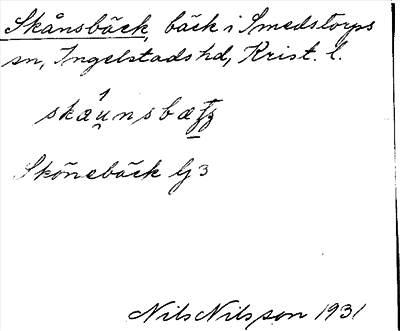 Skånsbäck, bäck i Smedstorps
sn, Ingelstads hd, Krist. l.
Skönebäck
Nils Nilsson 1931